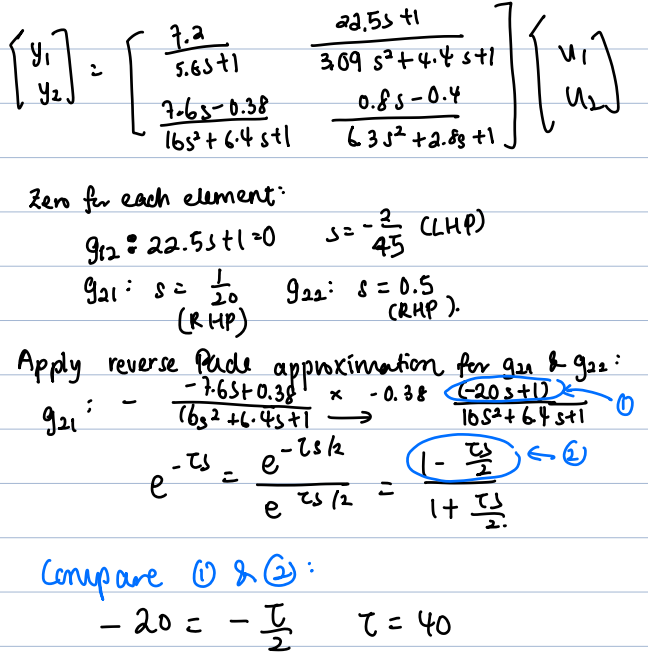 [y₁ y₂] = [ 7.2/(5.6s+1) (22.5s+1)/(3.09 s²+4.4 s+1) ; (7.6s-0.38)/(16s²+6.4s+1) (0.8s-0.4)/(6.3s²+2.8s+1) ] [u₁ u₂]
Zero for each element:
g₁₂: 22.5s+1=0 s=-2/45 (LHP)
g₂₁: s = 1/20 (RHP) g₂₂: s = 0.5 (RHP).
Apply reverse Pade approximation for g₂₁ & g₂₂:
g₂₁: - (-7.6s+0.38)/(16s²+6.4s+1) × → -0.38 (-20s+1)/(16s²+6.4s+1) ← ①
e^(-τs) = e^(-τs/2)/e^(τs/2) = (1 - τs/2)/(1 + τs/2) ← ②
Compare ① & ②:
-20 = -τ/2 τ = 40